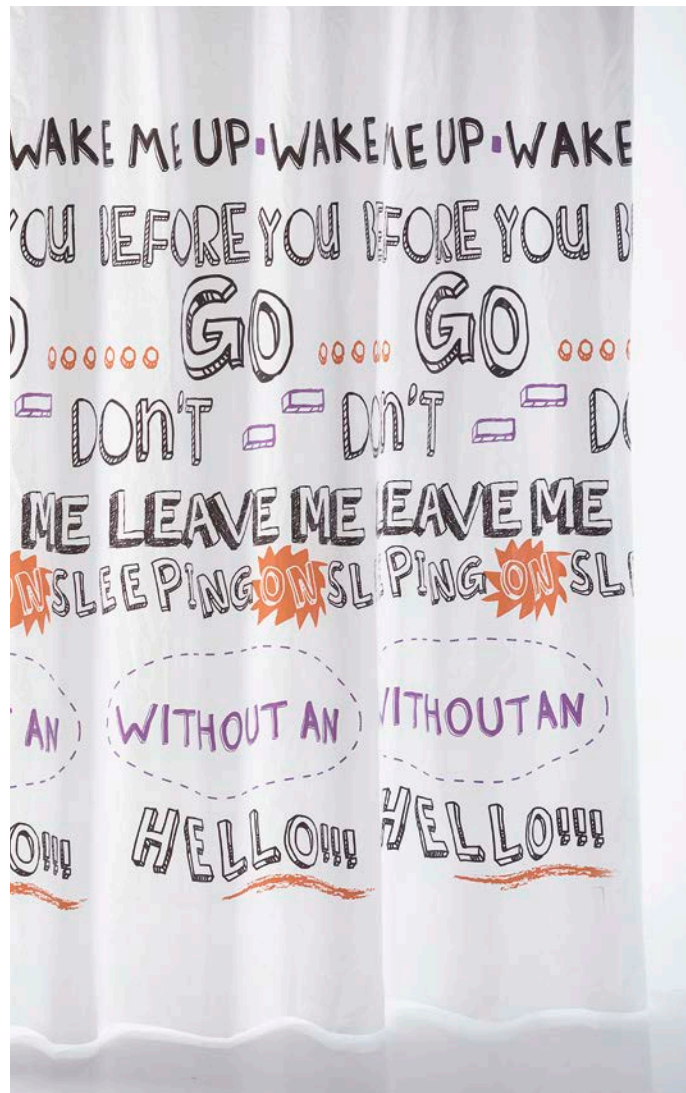 WAKE ME UP WAKE ME UP WAKE
YOU BEFORE YOU BEFORE YOU B
GO GO
DON'T DON'T DO
ME LEAVE ME LEAVE ME
ON SLEEPING ON SL PING ON SL
AN WITHOUT AN WITHOUT AN
O!!! HELLO!!! HELLO!!!